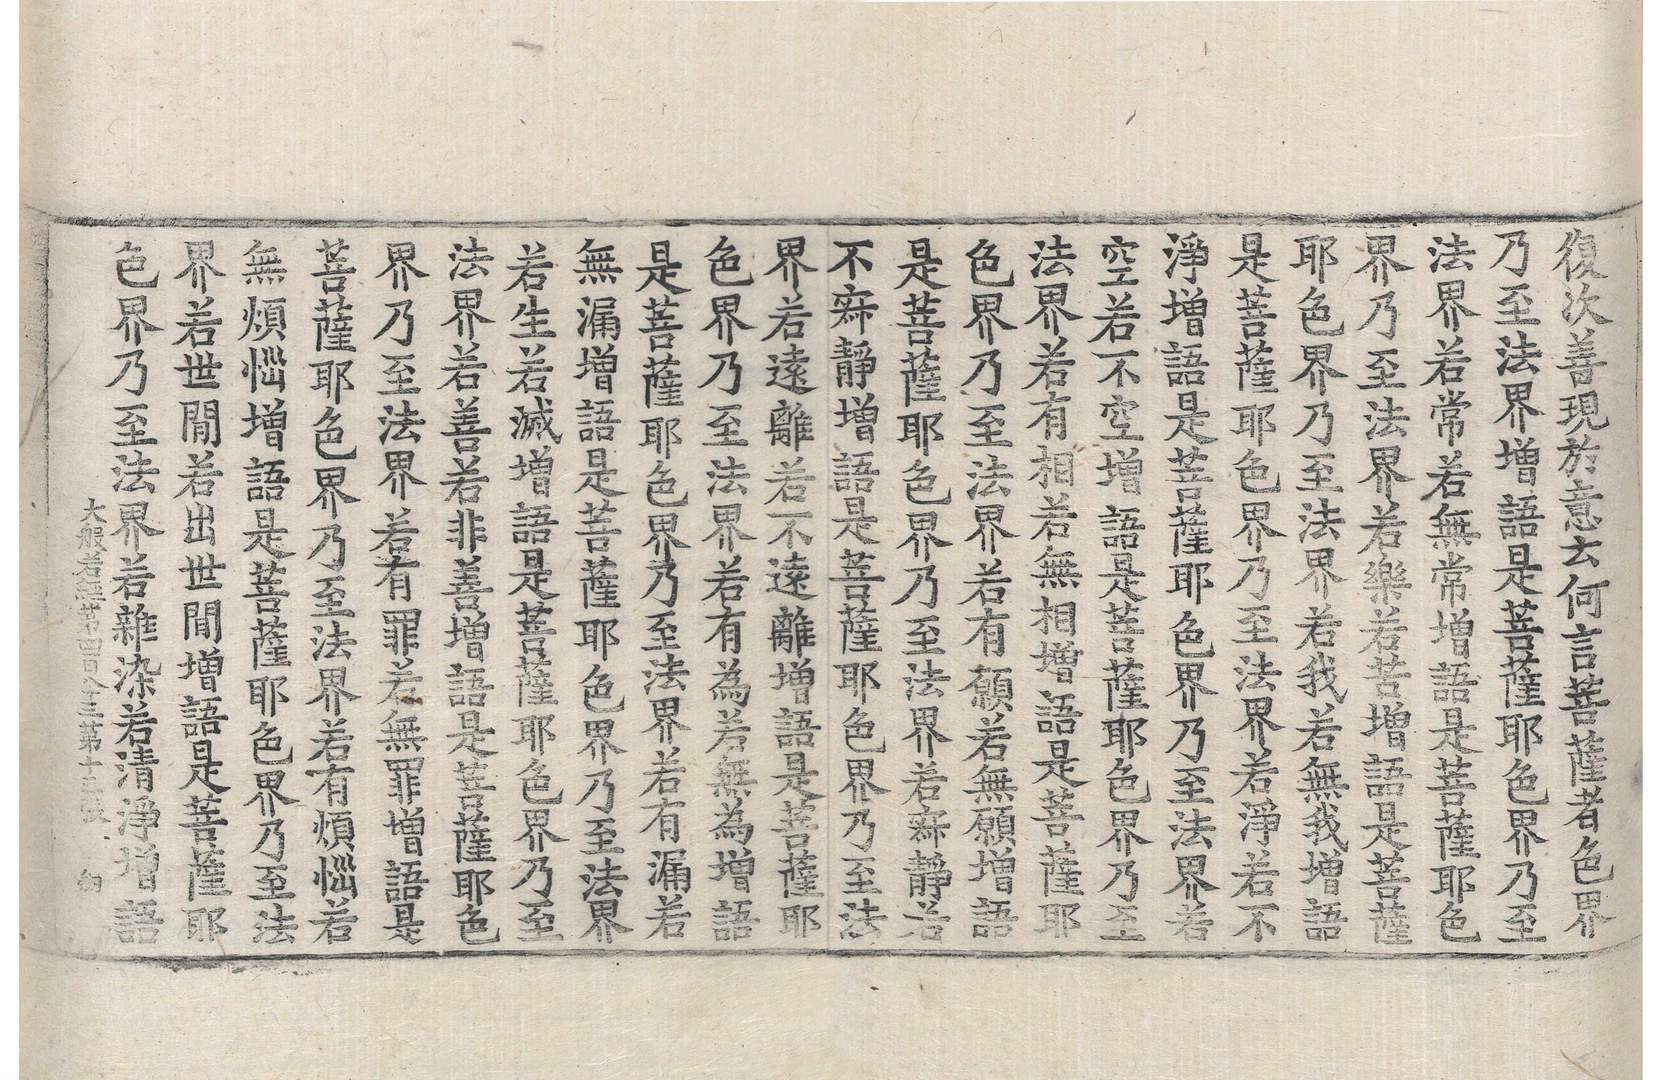 復次善現於意云何言菩薩者色界
乃至法界增語是菩薩耶色界乃至
法界若常若無常增語是菩薩耶色
界乃至法界若樂若苦增語是菩薩
耶色界乃至法界若我若無我增語
是菩薩耶色界乃至法界若淨若不
淨增語是菩薩耶色界乃至法界若
空若不空增語是菩薩耶色界乃至
法界若有相若無相增語是菩薩耶
色界乃至法界若有願若無願增語
是菩薩耶色界乃至法界若寂靜若
不寂靜增語是菩薩耶色界乃至法
界若遠離若不遠離增語是菩薩耶
色界乃至法界若有為若無為增語
是菩薩耶色界乃至法界若有漏若
無漏增語是菩薩耶色界乃至法界
若生若滅增語是菩薩耶色界乃至
法界若善若非善增語是菩薩耶色
界乃至法界若有罪若無罪增語是
菩薩耶色界乃至法界若有煩惱若
無煩惱增語是菩薩耶色界乃至法
界若世閒若出世閒增語是菩薩耶
色界乃至法界若雜染若清淨增語
大般若經第四百仐三第十三張